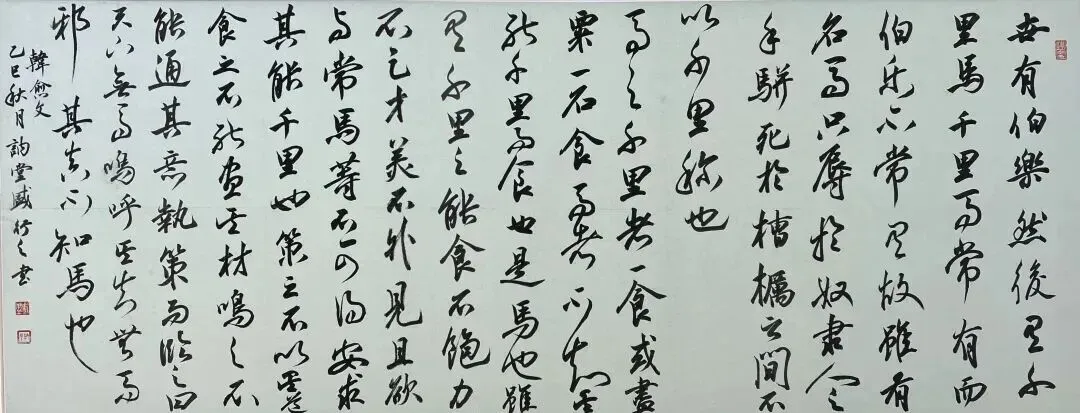 世有伯樂然後有千
里馬千里馬常有而
伯乐不常有故雖有
名馬只辱於奴隶人之
手駢死於槽櫪之間不
以千里称也
馬之千里者一食或盡
粟一石食馬者不知其
能千里而食也是馬也雖
有千里之能食不飽力
不足才美不外見且欲
与常馬等不可得安求
其能千里也策之不以其道
食之不能尽其材鳴之不
能通其意執策而臨之曰
天下無馬嗚呼其真無馬
邪其真不知馬也
韓愈文
乙巳秋月堂盛竹之书